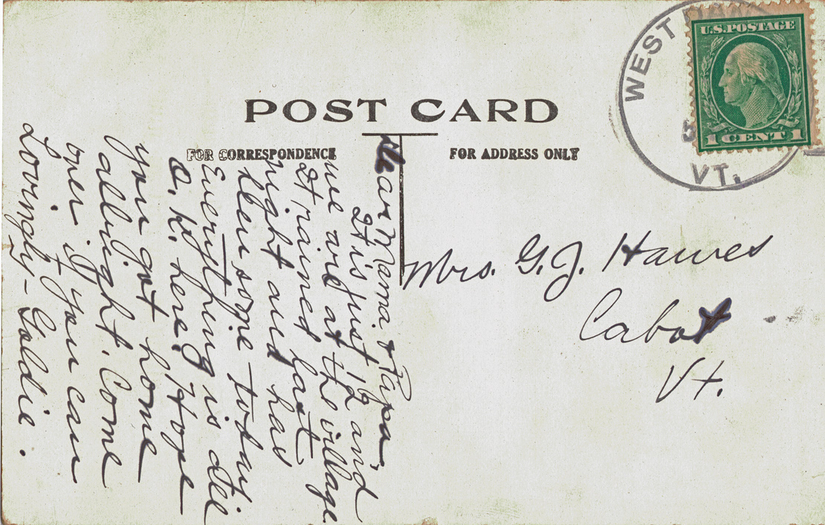 POST CARD
FOR CORRESPONDENCE
FOR ADDRESS ONLY
WEST
VT.
U.S. POSTAGE
1 CENT 1
Dear Mama & Papa,
It is just 12 and
we are at the village
It rained last
night and has
been some today.
Everything is all
O.K. here. Hope
you got home
allright. Come
over if you can
Lovingly - Goldie.
Mrs. G. J. Hawes
Cabot
Vt.